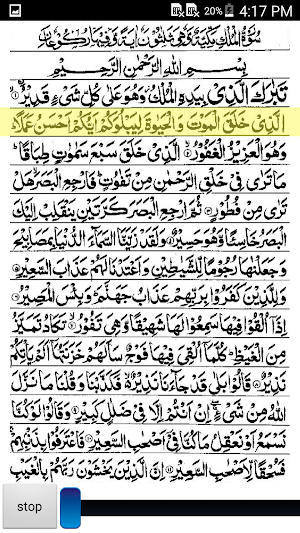 20% 4:17 PM
سُوْرَةُ الْمُلْكِ مَكِّيَّةٌ وَّهِيَ ثَلٰثُوْنَ اٰيَةً وَّفِيْهَا رُكُوْعَانِ
بِسْمِ اللهِ الرَّحْمٰنِ الرَّحِيْمِ
تَبٰرَكَ الَّذِيْ بِيَدِهِ الْمُلْكُ وَهُوَ عَلٰى كُلِّ شَيْءٍ قَدِيْرٌ
الَّذِيْ خَلَقَ الْمَوْتَ وَالْحَيٰوةَ لِيَبْلُوَكُمْ اَيُّكُمْ اَحْسَنُ عَمَلًا
وَهُوَ الْعَزِيْزُ الْغَفُوْرُ الَّذِيْ خَلَقَ سَبْعَ سَمٰوٰتٍ طِبَاقًا
مَا تَرٰى فِيْ خَلْقِ الرَّحْمٰنِ مِنْ تَفٰوُتٍ فَارْجِعِ الْبَصَرَ هَلْ
تَرٰى مِنْ فُطُوْرٍ ثُمَّ ارْجِعِ الْبَصَرَ كَرَّتَيْنِ يَنْقَلِبْ اِلَيْكَ
الْبَصَرُ خَاسِئًا وَّهُوَ حَسِيْرٌ وَلَقَدْ زَيَّنَّا السَّمَآءَ الدُّنْيَا بِمَصَابِيْحَ
وَجَعَلْنٰهَا رُجُوْمًا لِّلشَّيٰطِيْنِ وَاَعْتَدْنَا لَهُمْ عَذَابَ السَّعِيْرِ
وَلِلَّذِيْنَ كَفَرُوْا بِرَبِّهِمْ عَذَابُ جَهَنَّمَ وَبِئْسَ الْمَصِيْرُ
اِذَآ اُلْقُوْا فِيْهَا سَمِعُوْا لَهَا شَهِيْقًا وَّهِيَ تَفُوْرُ تَكَادُ تَمَيَّزُ
مِنَ الْغَيْظِ كُلَّمَآ اُلْقِيَ فِيْهَا فَوْجٌ سَاَلَهُمْ خَزَنَتُهَآ اَلَمْ يَاْتِكُمْ
نَذِيْرٌ قَالُوْا بَلٰى قَدْ جَآءَنَا نَذِيْرٌ فَكَذَّبْنَا وَقُلْنَا مَا نَزَّلَ
اللهُ مِنْ شَيْءٍ اِنْ اَنْتُمْ اِلَّا فِيْ ضَلٰلٍ كَبِيْرٍ وَقَالُوْا لَوْ كُنَّا
نَسْمَعُ اَوْ نَعْقِلُ مَا كُنَّا فِيْٓ اَصْحٰبِ السَّعِيْرِ فَاعْتَرَفُوْا بِذَنْۢبِهِمْ
فَسُحْقًا لِّاَصْحٰبِ السَّعِيْرِ اِنَّ الَّذِيْنَ يَخْشَوْنَ رَبَّهُمْ بِالْغَيْبِ
stop